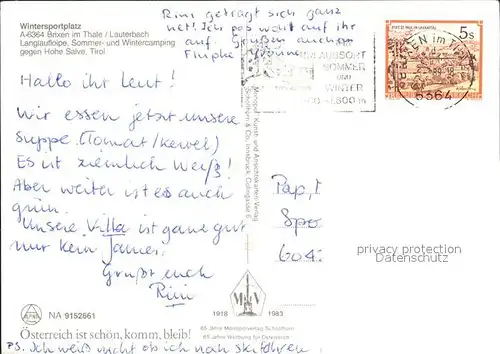 Wintersportplatz
A-6364 Brixen im Thale / Lauterbach
Langlaufloipe, Sommer- und Wintercamping
gegen Hohe Salve, Tirol
Rini geträgt sich ganz
net! Ich pas wohl auf ihr
auf. Grüßen auch
Hallo ihr Leut!
Wir essen jetzt unsere
Suppe (Tomat/
Es ist ziemlich Weiß!
Aber weiter ist es auch
grün.
Unsere Villa ist ganz gut
nur kein
Grüßt euch
Rini
NA 9152661
Österreich ist schön, komm, bleib!
PS. Ich weiß nicht ob ich nah skifahren
1918 1983
65 Jahre Mainsporverlag Schöllhorn
65 Jahre Werbung für Österreich
Schöllhorn & Co., Innsbruck, Colingasse 6
LUFTKURORT
SOMMER
UND
WINTER
800 m
BRIXEN im THALE
6364
5s
Pap,
Spo
604
privacy protection
Datenschutz